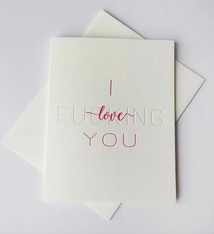 I
FUCKING
love
YOU